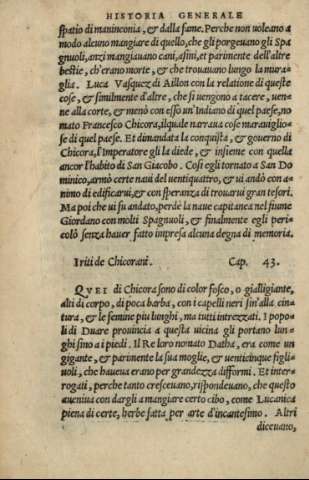 HISTORIA GENERALE
spatio di maninconia, & dalla fame. Perche non uoleano a
modo alcuno mangiare di quello, che gli porgeuano gli Spa
gnuoli, anzi mangiauano cani, asini, et parinente dell'altre
bestie, ch'erano morte, & che trouauano lungo la mura-
glia. Luca Vasquez di Aillon con la relatione di queste
cose, & similmente d'altre, che si uengono a tacere, uen-
ne alla corte, & menò con esso un'Indiano di quel paese, no
mato Francesco Chicora, ilquale narraua cose marauiglio-
se di quel paese. Et dimandata la conquista, & gouerno di
Chicora, l'Imperatore glì la diede, & insieme con quella
ancor l'habito di San Giacobo. Così egli tornato a San Do
minico, armò certe naui del uentiquattro, & ui andò con a-
nimo di edificarui, & con speranza di trouarui gran tesori.
Ma poi che ui fu andato, perde la naue capitanea nel fiume
Giordano con molti Spagnuoli, & finalmente egli peri-
colò senza hauer fatto impresa alcuna degna di memoria.
I riti de Chicorani. Cap. 43.
QVEI di Chicora sono di color fosco, o gialligiante,
alti di corpo, di poca barba, con i capelli neri sin'alla cin-
tura, & le femine piu lunghi, ma tutti intrezzati. I popo
li di Duare prouincia a questa uicina gli portano lun-
ghi sino a i piedi. Il Re loro nomato Datha, era come un
gigante, & parinente la sua moglie, & uenticinque figli-
uoli, che haueua erano per grandezza difformi. Et inter-
rogati, perche tanto cresceuano, rispondeuano, che questo
aueniua con dargli a mangiare certo cibo, come Lucanica
piena di certe, herbe fatta per arte d'incantesimo. Altri
diceuano,